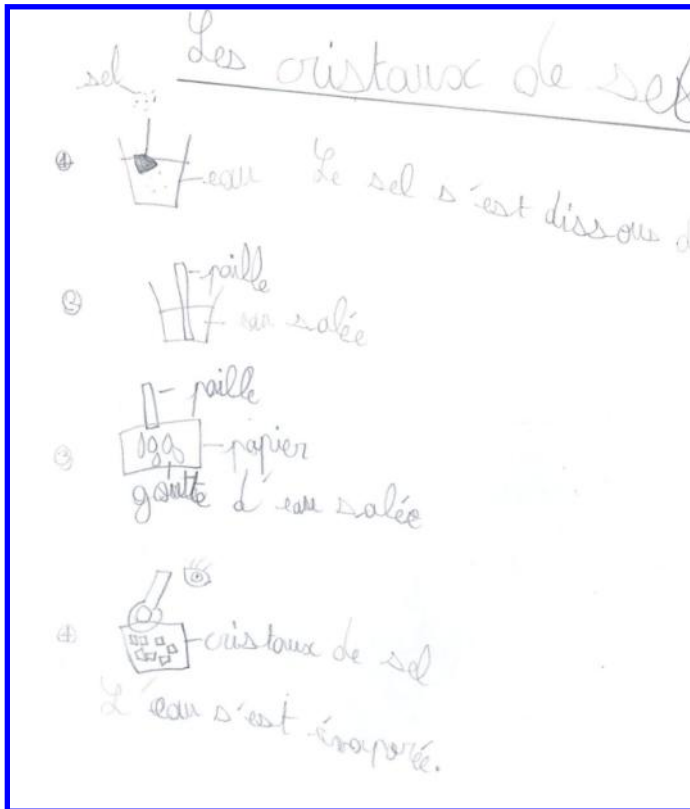 Les cristaux de sel
sel
1
eau
Le sel s'est dissous d
2
paille
eau salée
3
paille
papier
goutte d'eau salée
4
cristaux de sel
L'eau s'est évaporée.